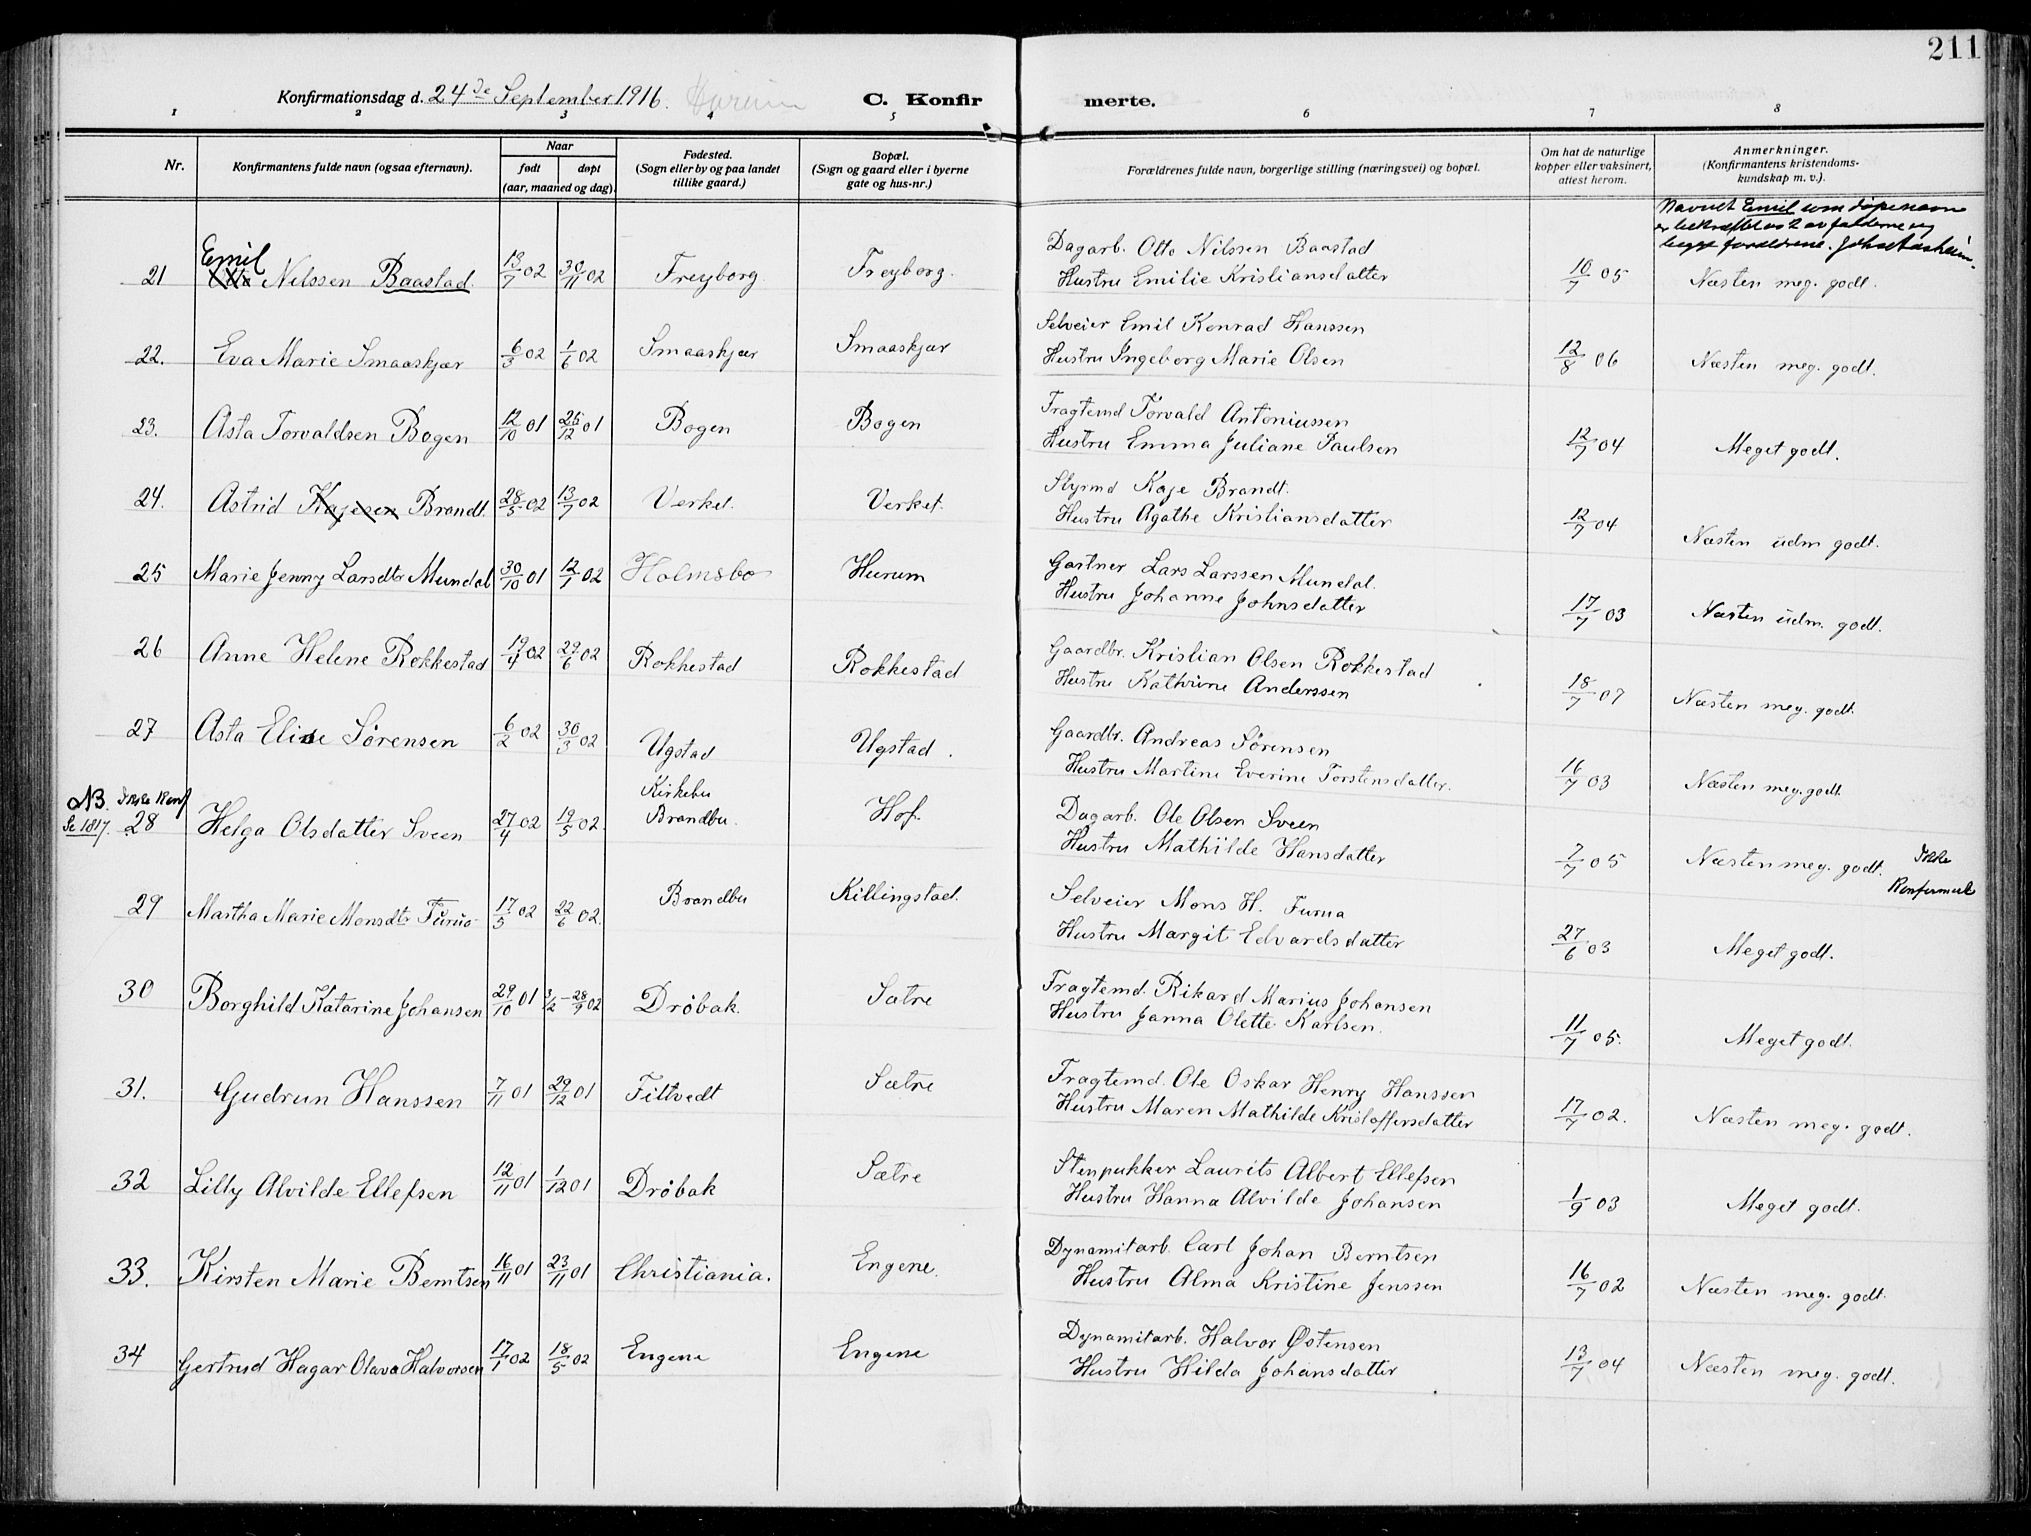 211
Konfirmationsdag d. 24de September 1916. Hurum C. Konfirmerte.
1 2 3 4 5 6 7 8
Nr. Konfirmantens fulde navn (ogsaa efternavn). Naar født døpt (aar, maaned og dag). Fødested. (Sogn eller by og paa landet tillike gaard.) Bopæl. (Sogn og gaard eller i byerne gate og hus-nr.) Forældrenes fulde navn, borgerlige stilling (næringsvei) og bopæl. Om hat de naturlige kopper eller vaksinert, attest herom. Anmerkninger. (Konfirmantens kristendoms-kundskap m. v.).
Navnet Emil som døpenavn
er bekræftet av faderen og
begge forældrene. Johs Aasheim.
Emil Dagarb. Otto Nilssen Baastad
21 Nilssen Baastad. 13/7 02 30/11 02 Freyborg. Freyborg. Hustru Emilie Kristiansdatter 10/7 05 Næsten meg. godt.
Selveier Emil Konrad Hanssen
22. Eva Marie Smaaskjær 6/3 02 1/6 02 Smaaskjær Smaaskjær Hustru Ingeborg Marie Olsen 12/8 06 Næsten meg. godt.
Fragtemd Torvald Antoniussen
23. Asta Torvaldsen Bogen 12/10 01 26/12 01 Bogen Bogen Hustru Emma Juliane Paulsen 12/7 04 Meget godt.
Styrmd Kaje Brandt.
24. Astrid Kajesen Brandt. 28/5 02 13/7 02 Verket. Verket. Hustru Agathe Kristiansdatter 12/7 04 Næsten udm godt.
Gartner Lars Larssen Mundal.
25 Marie Jenny Larsdtr Mundal 30/10 01 12/1 02 Holmsbo Hurum Hustru Johanne Johnsdatter 17/7 03 Næsten udm. godt.
Gaardbr. Kristian Olsen Rokkestad
26 Anne Helene Rokkestad 19/4 02 29/6 02 Rokkestad Rokkestad Hustru Kathrine Anderssen 18/7 07 Næsten meg. godt.
Gaardbr. Andreas Sørensen
27 Asta Elise Sørensen 6/2 02 30/3 02 Ugstad Ugstad. Hustru Martine Everine Torstensdatter. 16/7 03 Næsten meg. godt.
NB. Ikke Konf Kirkebu Dagarb. Ole Olsen Sveen
Se 1817. 28 Helga Olsdatter Sveen 27/4 02 19/5 02. Brandbu. Hof. Hustru Mathilde Hansdatter 7/7 05 Næsten meg. godt. Ikke Konfirmert
Selveier Mons H. Furua
29 Martha Marie Monsdtr Furua 17/5 02 22/6 02. Brandbu Killingstad. Hustru Margit Edvardsdatter 27/6 03 Meget godt.
Fragtemd. Rikard Marius Johansen
30 Borghild Katarine Johansen 29/10 01 3/2 - 28/9 02 Drøbak. Sætre Hustru Janna Olette Karlsen. 11/7 05. Meget godt.
Fragtemd. Ole Oskar Henry Hanssen
31. Gudrun Hanssen 7/11 01 29/12 01 Filtvedt Sætre Hustru Maren Mathilde Kristoffersdatter 17/7 02. Næsten meg. godt.
Stenpukker Laurits Albert Ellefsen
32 Lilly Alvilde Ellefsen 12/11 01 1/12 01 Drøbak Sætre Hustru Hanna Alvilde Johansen 1/9 03 Meget godt.
Dynamitarb. Carl Johan Berntsen
33. Kirsten Marie Berntsen 16/11 01 23/11 01 Christiania. Engene. Hustru Alma Kristine Jenssen 16/7 02 Næsten meg. godt.
Dynamitarb. Halvor Østensen
34 Gertrud Hagar Olava Halvorsen 17/1 02 18/5 02 Engene Engene Hustru Hilda Johansdatter 13/7 04 Næsten meg. godt.